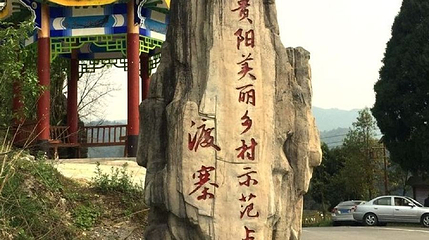 贵阳美丽乡村示范点
渡寨